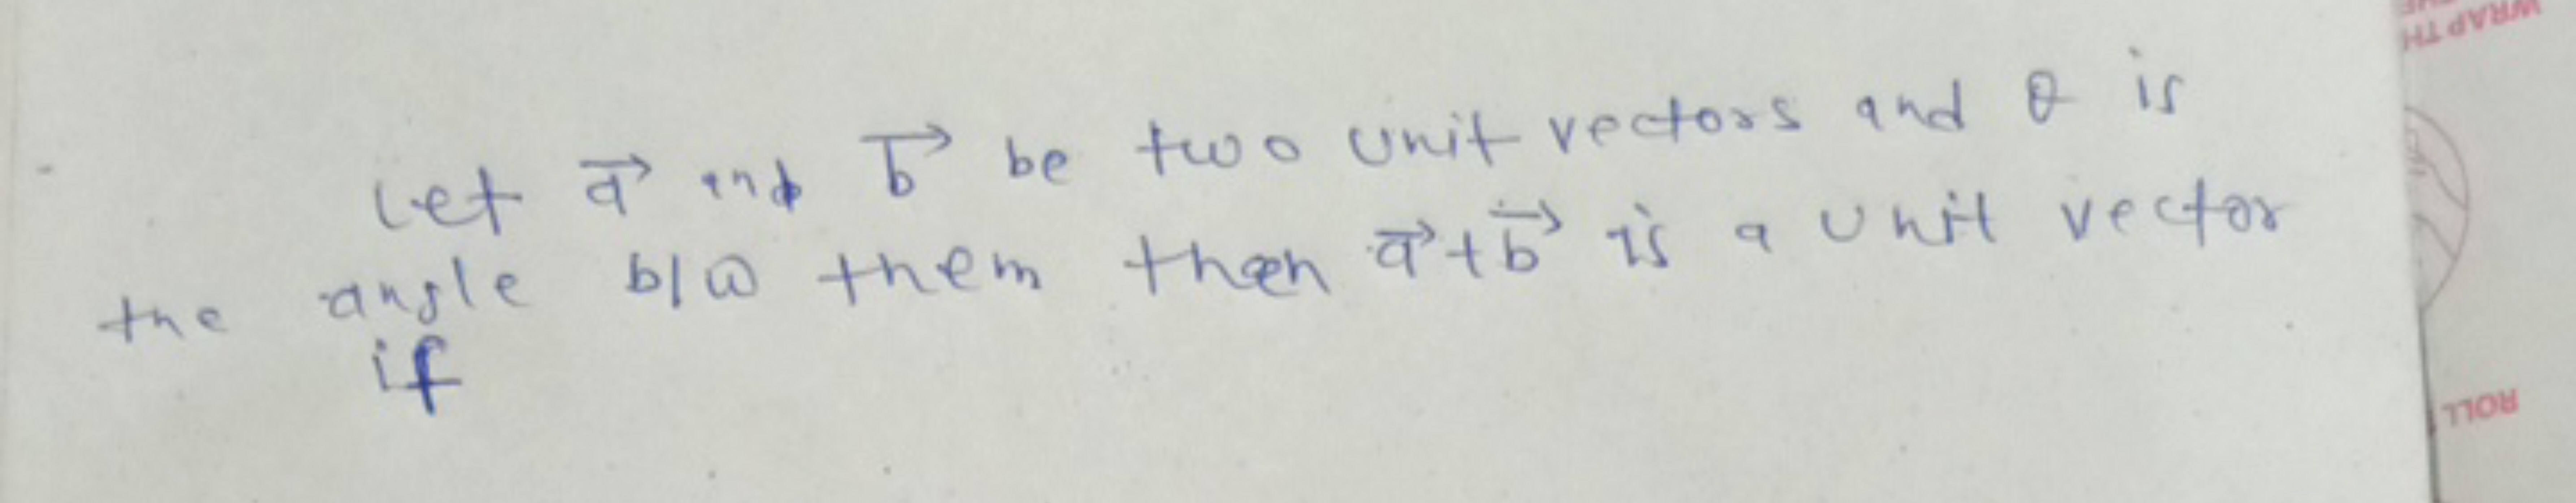 Let a⃗ and b⃗ be two unit vectors and θ is
the angle b/w them then a⃗+b⃗ is a unit vector
if
WRAP TH
ROLL